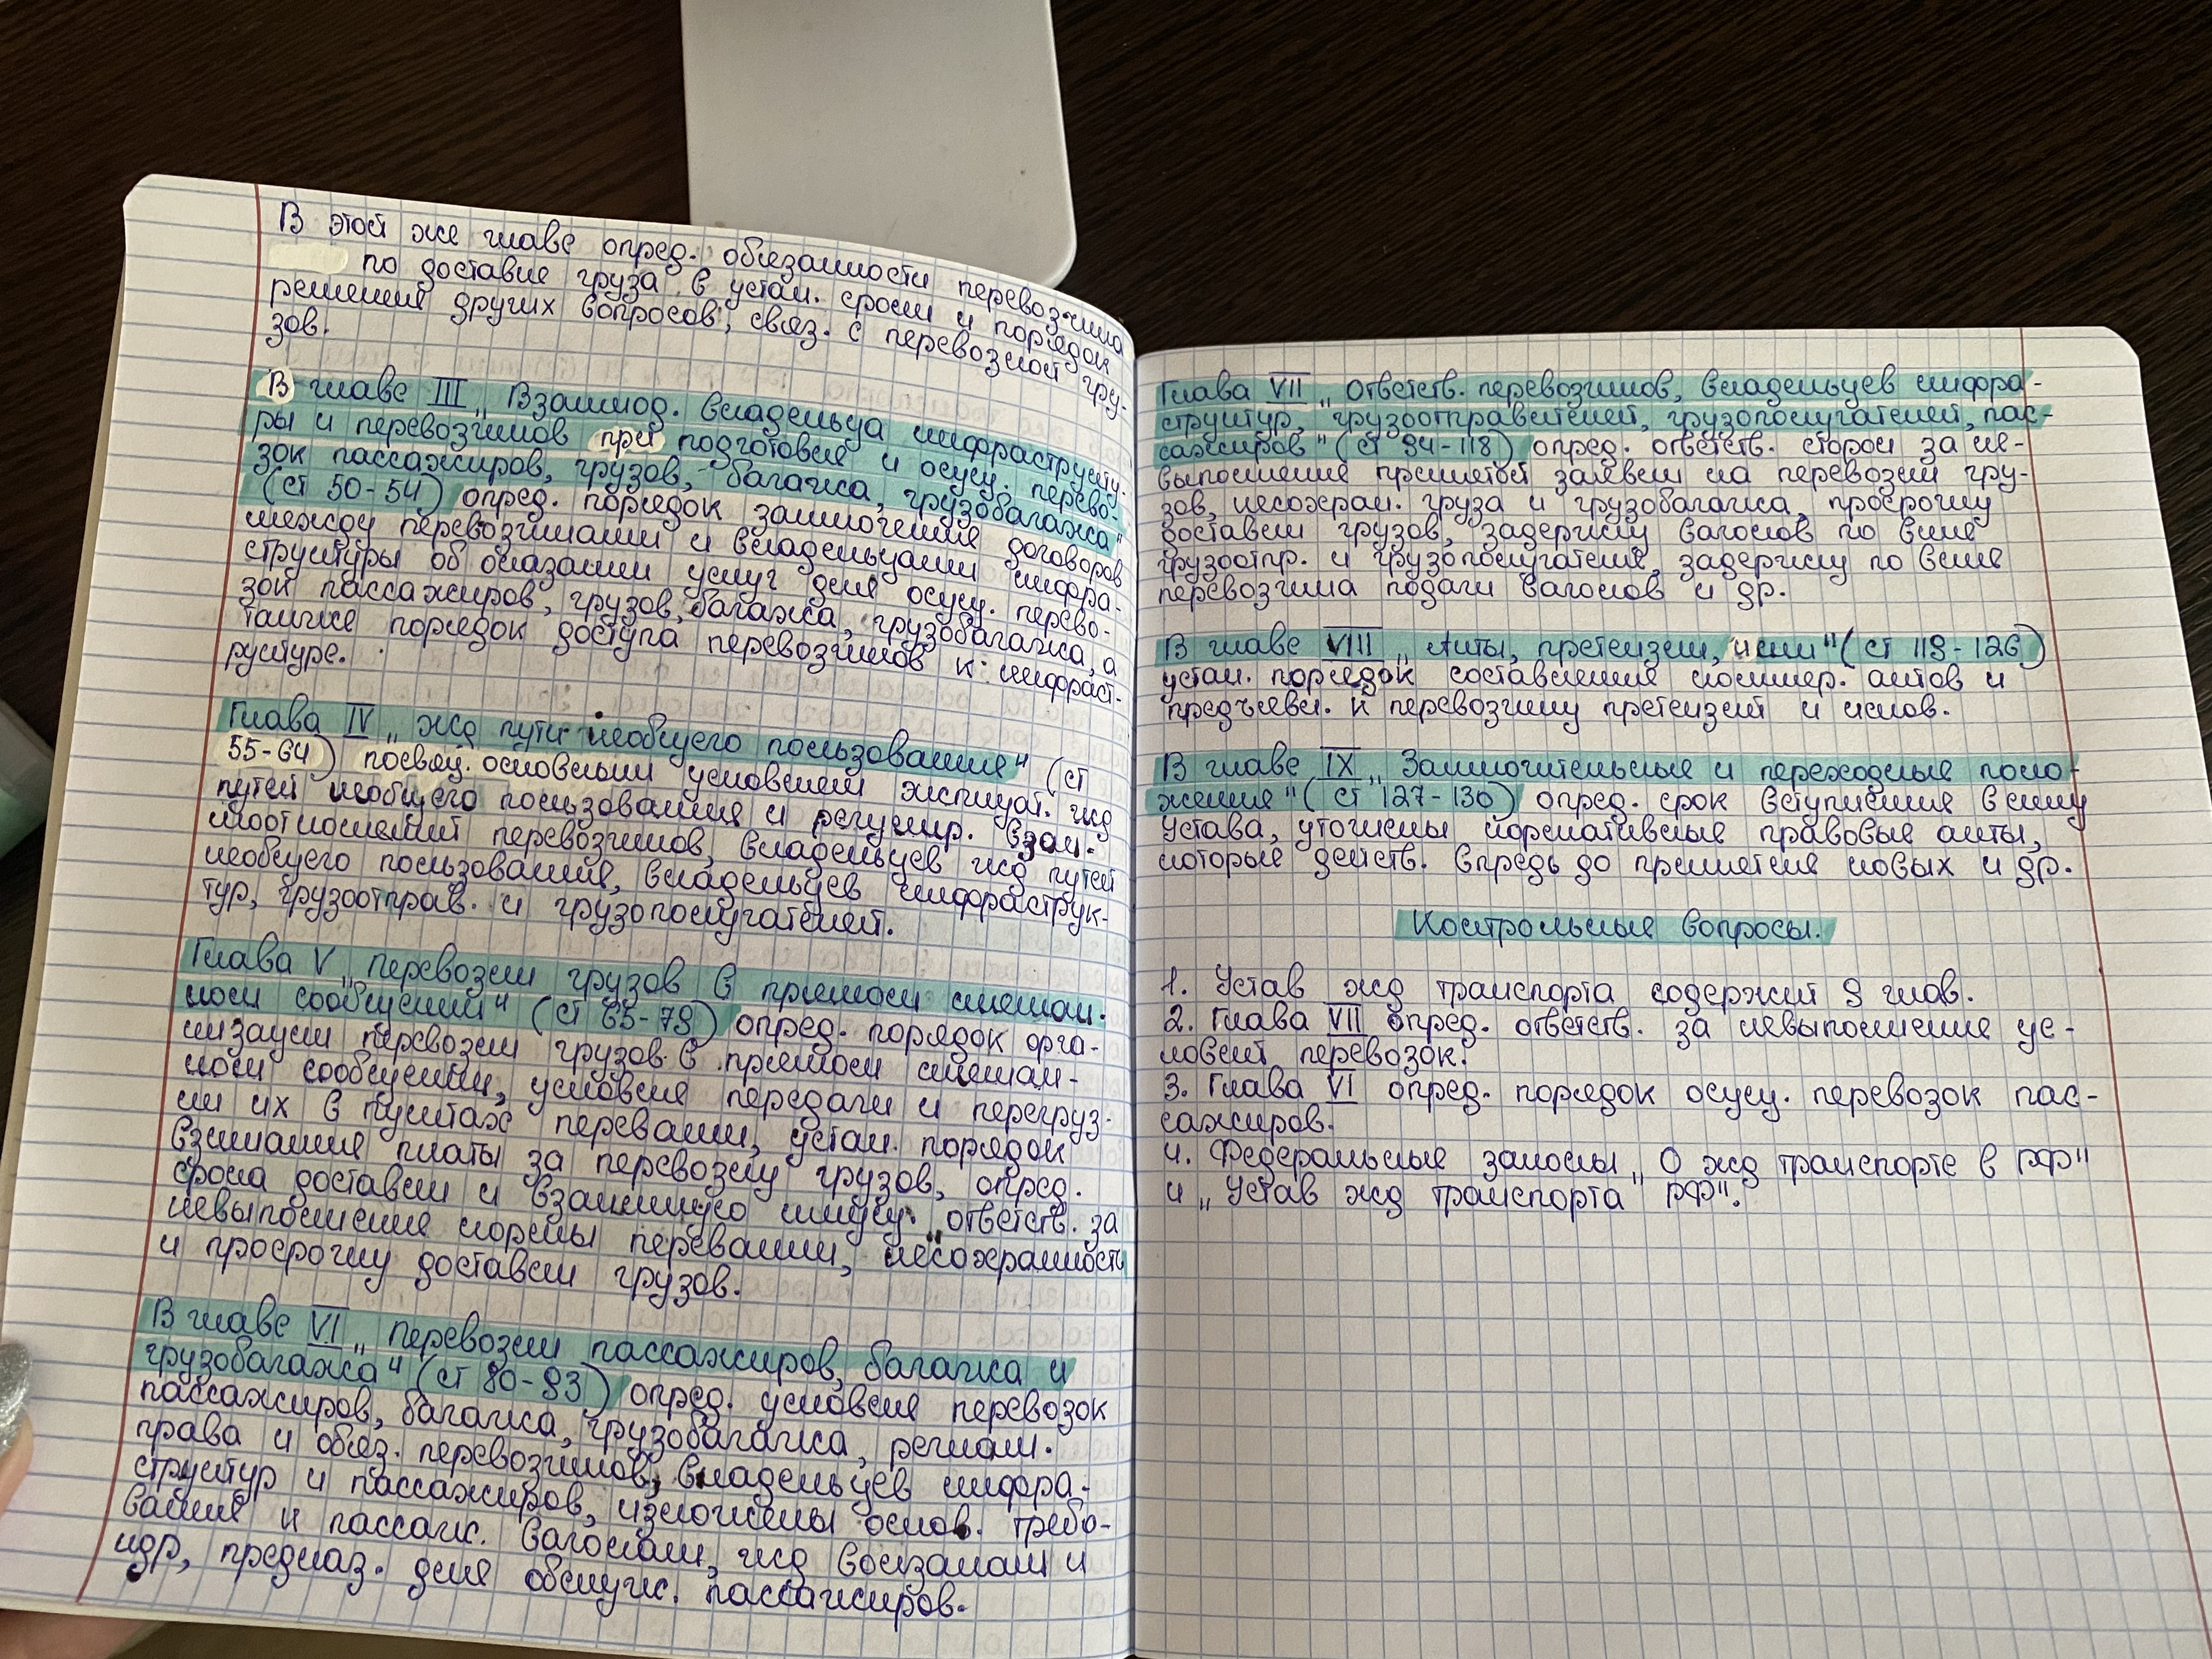 В этой же главе опред. обязанности перевозчика
по доставке груза в устан. сроки и порядок
решения других вопросов, связ. с перевозкой гру-
зов.
В главе III „Взаимод. владельца инфраструкту-
ры и перевозчиков при подготовке и осущ. перево-
зок пассажиров, грузов, багажа, грузобагажа"
(ст 50-54) опред. порядок заключения договоров
между перевозчиками и владельцами инфра-
структуры об оказании услуг для осущ. перево-
зок пассажиров, грузов, багажа, грузобагажа, а
также порядок доступа перевозчиков к инфраст-
руктуре.
Глава IV „жд пути необщего пользования" (ст
55-64) посвящ. основным условиям эксплуат. жд
путей необщего пользования и регулир. взаи-
моотношений перевозчиков, владельцев жд путей
необщего пользования, владельцев инфраструк-
тур, грузоотправ. и грузополучателей.
Глава V „перевозки грузов в прямом смешан.
ном сообщении" (ст 65-79) опред. порядок орга-
низации перевозки грузов в прямом смешан-
ном сообщении, условия передачи и перегруз-
ки их в пунктах перевалки, устан. порядок
взимания платы за перевозку грузов, опред.
срока доставки и взаимную имущ. ответств. за
невыполнение нормы перевалки, несохранность
и просрочку доставки грузов.
В главе VI „перевозки пассажиров, багажа и
грузобагажа" (ст 80-93) опред. условия перевозок
пассажиров, багажа, грузобагажа, реглам.
права и обяз. перевозчиков, владельцев инфра-
структур и пассажиров, изложены основ. требо-
вания к пассаж. вагонам, жд вокзалам и
др, предназ. для обслуж. пассажиров.
Глава VII „Ответств. перевозчиков, владельцев инфра-
структур, грузоотправителей, грузополучателей, пас-
сажиров" (ст 94-118) опред. ответств. сторон за не-
выполнение принятой заявки на перевозки гру-
зов, несохран. груза и грузобагажа, просрочку
доставки грузов, задержку вагонов по вине
грузоотпр. и грузополучателя, задержку по вине
перевозчика подачи вагонов и др.
В главе VIII „Акты, претензии, иски" (ст 119-126)
устан. порядок составления коммер. актов и
предъявл. к перевозчику претензий и исков.
В главе IX „Заключительные и переходные поло-
жения" (ст 127-130) опред. срок вступления в силу
Устава, уточнены нормативные правовые акты,
которые действ. впредь до принятия новых и др.
Контрольные вопросы.
1. Устав жд транспорта содержит 9 глав.
2. Глава VII опред. ответств. за невыполнение ус-
ловий перевозок.
3. Глава VI опред. порядок осущ. перевозок пас-
сажиров.
4. Федеральные законы „О жд транспорте в РФ"
и „Устав жд транспорта РФ".